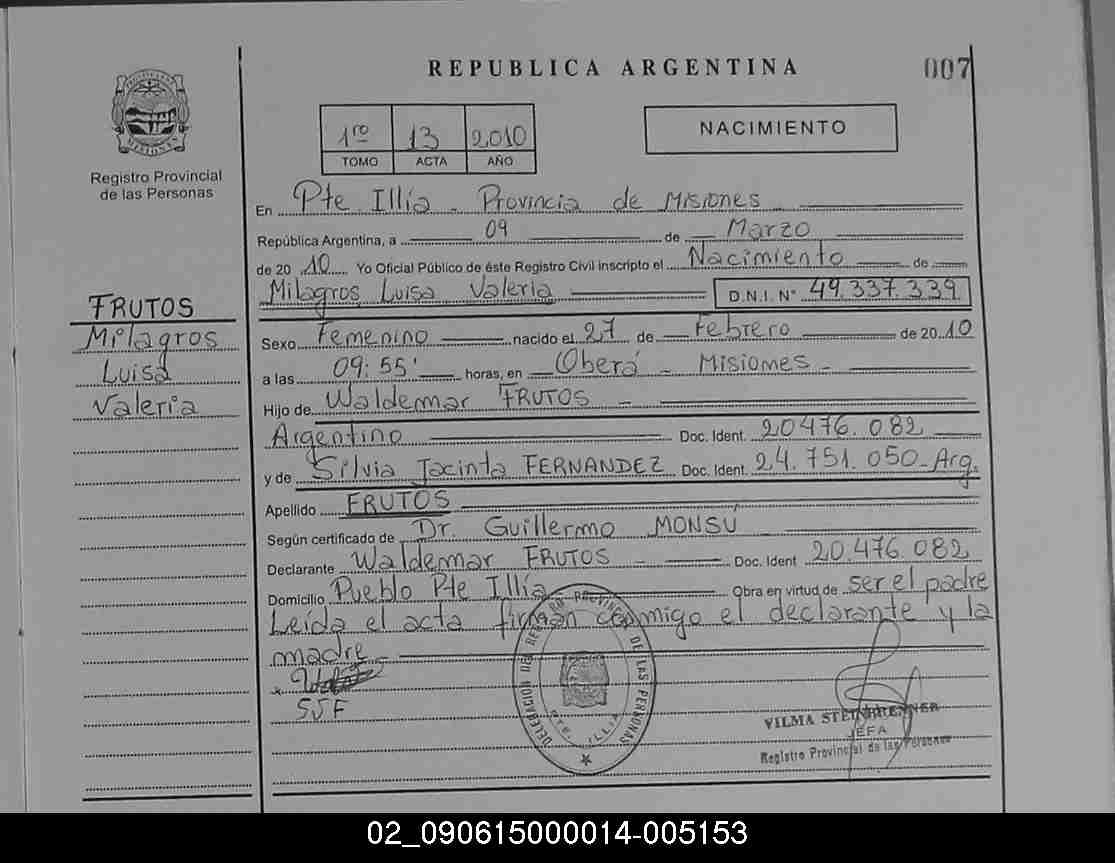 REPUBLICA ARGENTINA
007
MISIONES
Registro Provincial
de las Personas
1ro 13 2010
TOMO ACTA AÑO
NACIMIENTO
En Pte Illía - Provincia de Misiones
República Argentina, a 09 de Marzo
de 20 10 Yo Oficial Público de éste Registro Civil inscripto el Nacimiento de
Milagros Luisa Valeria D.N.I. N° 49.337.339
FRUTOS
Milagros
Luisa
Valeria
Sexo Femenino nacido el 27 de Febrero de 20 10
a las 09:55' horas, en Oberá - Misiones -
Hijo de Waldemar FRUTOS -
Argentino Doc. Ident. 20476.082
y de Silvia Jacinta FERNANDEZ Doc. Ident. 24.751.050-Arg.
Apellido FRUTOS
Según certificado de Dr. Guillermo MONSÚ
Declarante Waldemar FRUTOS - Doc. Ident 20.476.082
Domicilio Pueblo Pte Illía Obra en virtud de ser el padre
Leída el acta firman conmigo el declarante y la
madre
SJF
DELEGACION DEL REGISTRO PROVINCIAL DE LAS PERSONAS
PTE. ILLIA
VILMA STEINBRENNER
JEFA
Registro Provincial de las Personas
02_090615000014-005153